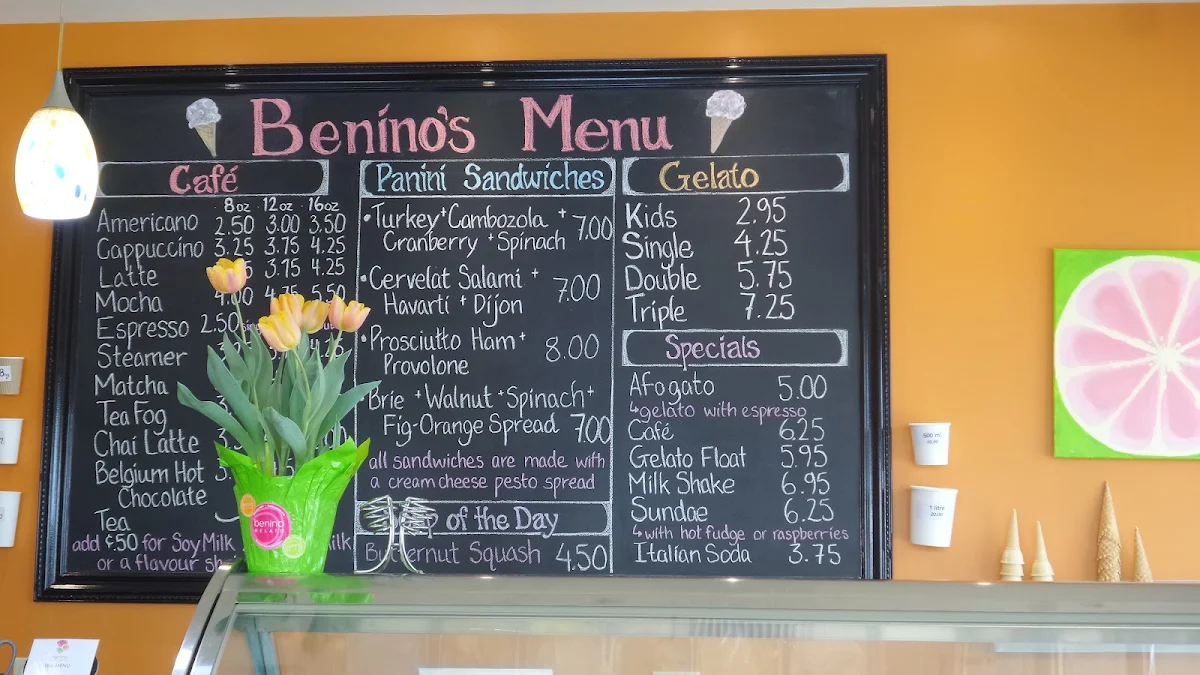 Benino's Menu
Café
8oz 12oz 16oz
Americano 2.50 3.00 3.50
Cappuccino 3.25 3.75 4.25
Latte 3.75 4.25
Mocha 4.00 4.75 5.50
Espresso 2.50
Steamer
Matcha
Tea Fog
Chai Latte
Belgium Hot
Chocolate
Tea
add ¢.50 for Soy Milk
or a flavour
Panini Sandwiches
•Turkey + Cambozola +
Cranberry + Spinach 7.00
•Cervelat Salami +
Havarti + Dijon 7.00
•Prosciutto Ham +
Provolone 8.00
Brie + Walnut + Spinach +
Fig-Orange Spread 7.00
all sandwiches are made with
a cream cheese pesto spread
of the Day
Butternut Squash 4.50
Gelato
Kids 2.95
Single 4.25
Double 5.75
Triple 7.25
Specials
Afogato 5.00
↳gelato with espresso
Café 6.25
Gelato Float 5.95
Milk Shake 6.95
Sundae 6.25
↳with hot fudge or raspberries
Italian Soda 3.75
benino
GELATO
500 ml
1 litre